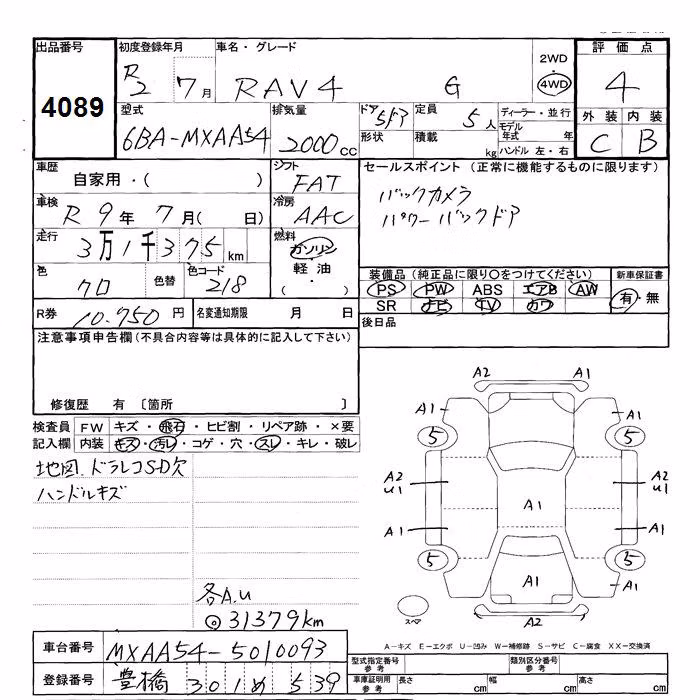 出品番号 初度登録年月 車名・グレード 2WD 評価点
4089 R2 7月 RAV4 G 4WD 4
型式 排気量 ドア 定員 ディーラー・並行 外装 内装
6BA-MXAA54 2000cc 5ドア 5人 モデル年式 年 C B
形状 積載 kg ハンドル 左・右
車歴 自家用・( ) シフト FAT セールスポイント(正常に機能するものに限ります)
車検 R9年7月( 日) 冷房 AAC バックカメラ
パワーバックドア
走行 3万1千375km 燃料 ガソリン
軽油
( ・ )
色 クロ 色替 色コード 218 装備品(純正品に限り〇をつけてください) 新車保証書
PS PW ABS エアB AW 有・無
SR ナビ TV カワ
R券 10.750円 名変通知期限 月 日 後日品
注意事項申告欄(不具合内容等は具体的に記入して下さい)
修復歴 有 〔箇所 〕
検査員 FW キズ・飛石・ヒビ割・リペア跡・×要
記入欄 内装 キズ・汚レ・コゲ・穴・スレ・キレ・破レ
地図、ドラレコSD欠
ハンドルキズ
各A.U
◎31379km
A2 A1
A1 A1
5 5
A2 U1 A2 U1
A1
A1 A1
5 5
A1 A1 A1
スペア A2
A―キズ E―エクボ U―凹み W―補修跡 S―サビ C―腐食 XX―交換済
車台番号 MXAA54-5010093 型式指定番号 参考 類別区分番号 参考
登録番号 豊橋 301 め 539 車庫証明用 参考 長さ cm 幅 cm 高さ cm